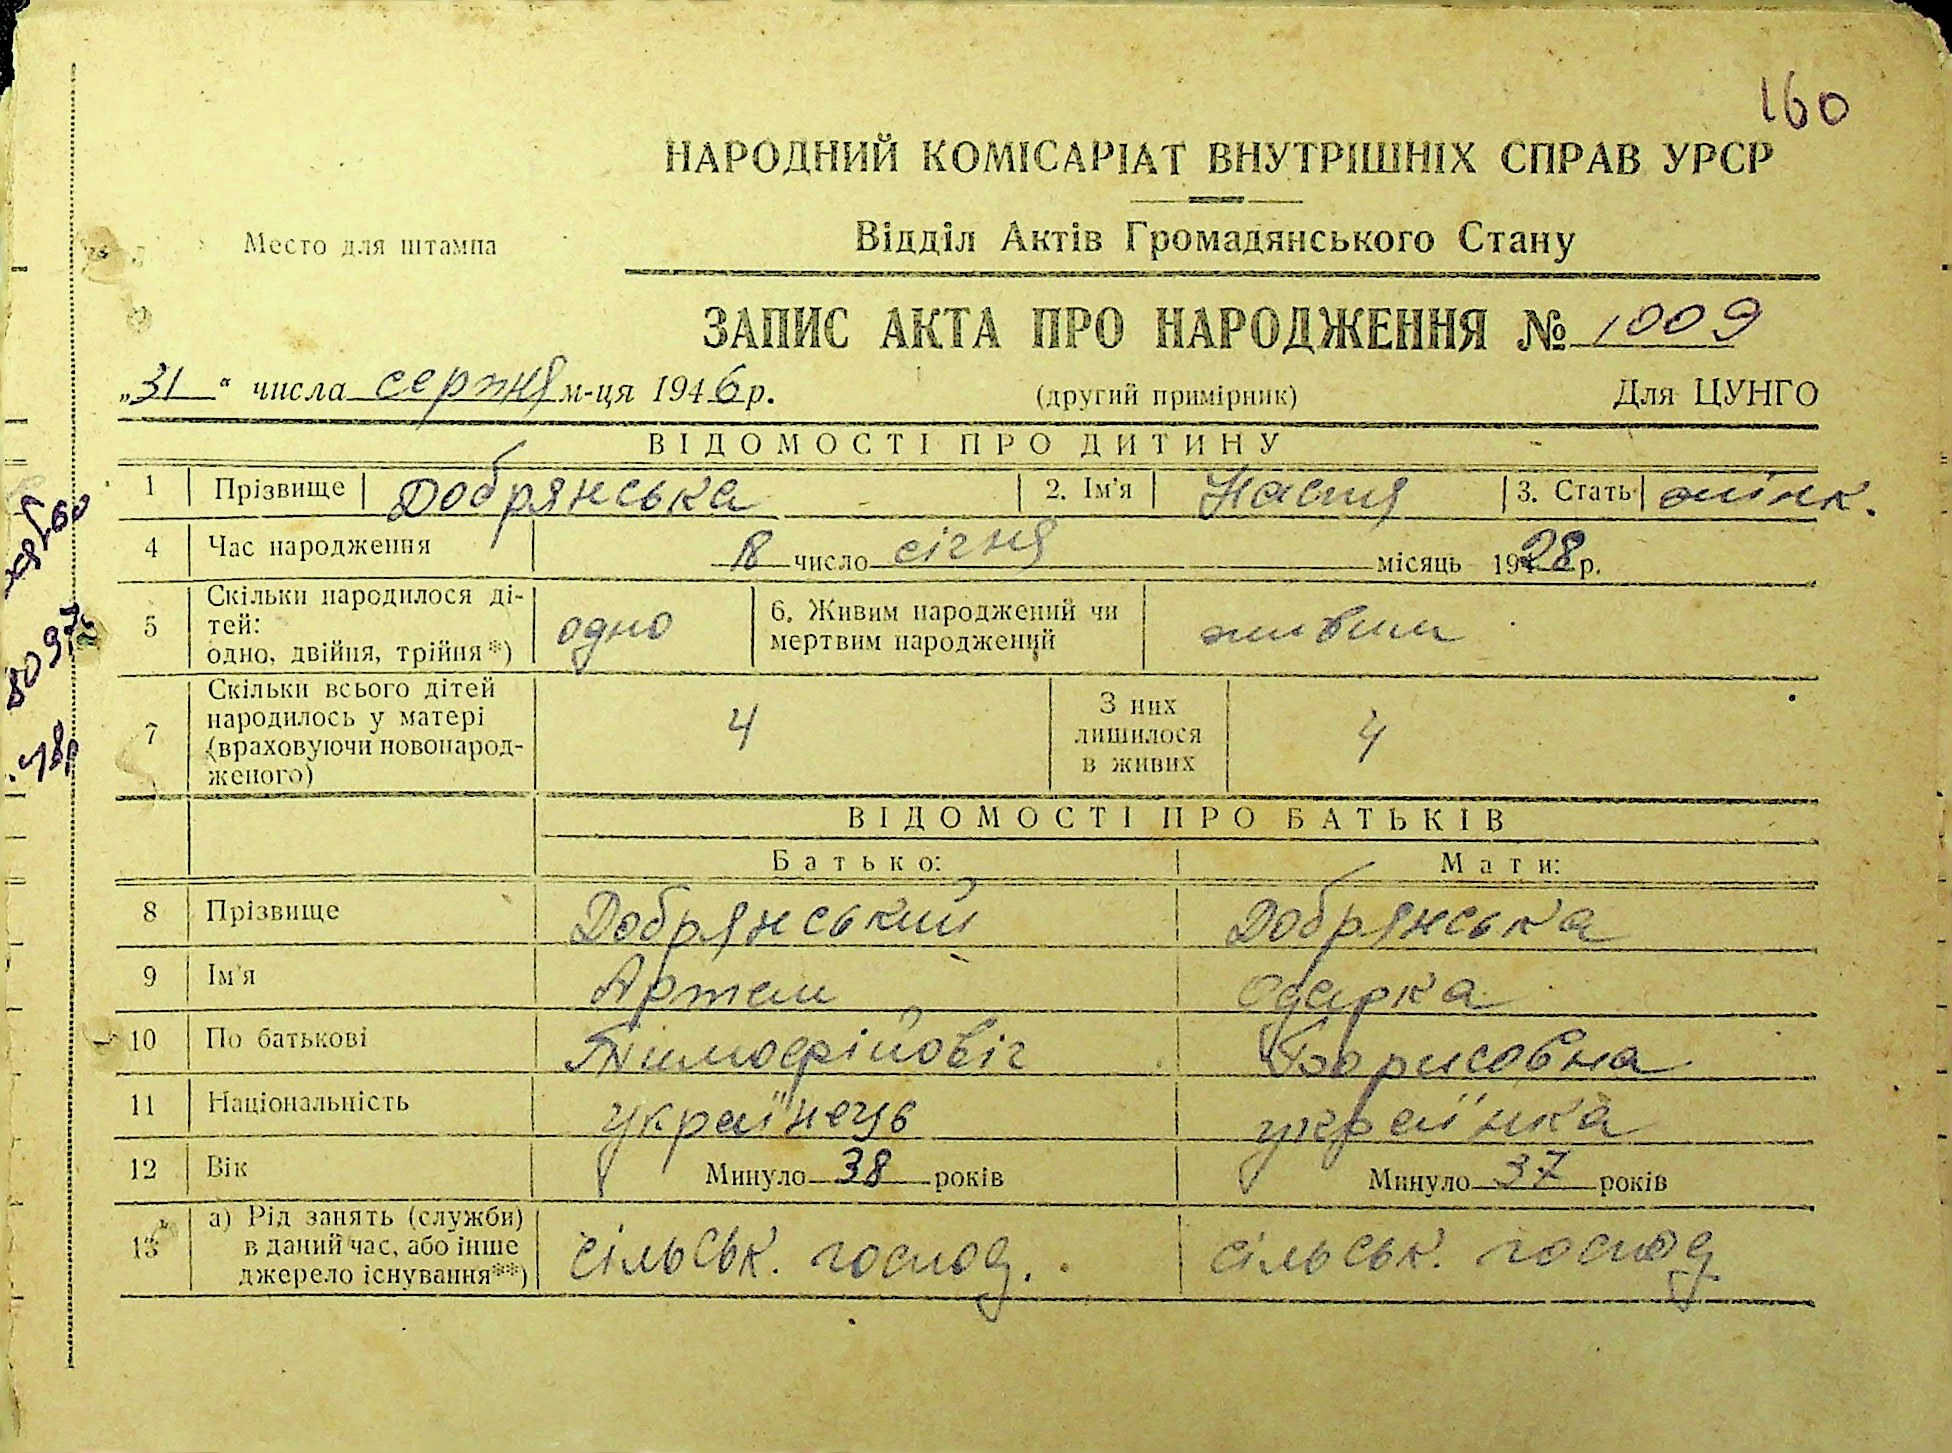 160
НАРОДНИЙ КОМІСАРІАТ ВНУТРІШНІХ СПРАВ УРСР
Место для штампа
Відділ Актів Громадянського Стану
ЗАПИС АКТА ПРО НАРОДЖЕННЯ № 1009
„31“ числа серпня м-ця 1946 р. (другий примірник) Для ЦУНГО
ВІДОМОСТІ ПРО ДИТИНУ
1 Прізвище Добрянська 2. Ім'я Настя 3. Стать жінк.
4 Час народження 18 число січня місяць 1928 р.
5 Скільки народилося ді-
тей:
одно, двійня, трійня*) одно 6. Живим народжений чи
мертвим народжений живим
7 Скільки всього дітей
народилось у матері
(враховуючи новонарод-
женого) 4 З них
лишилося
в живих 4
ВІДОМОСТІ ПРО БАТЬКІВ
Батько: Мати:
8 Прізвище Добрянський Добрянська
9 Ім'я Артем Одарка
10 По батькові Тимофійовіч Борисовна
11 Національність українець українка
12 Вік Минуло 38 років Минуло 37 років
13 а) Рід занять (служби)
в даний час, або інше
джерело існування**) сільськ. господ. сільськ. господ